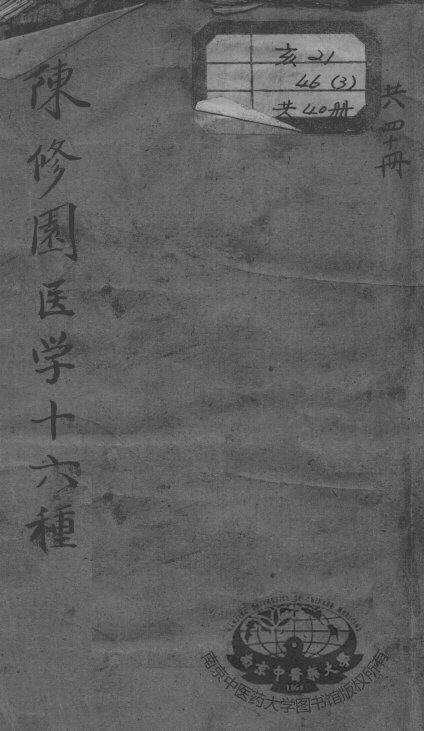 陳修園医学十六種
亥 21
46 (3)
共 40册
共四十冊
南京中醫藥大學
1954
南京中医药大学图书馆版权所有